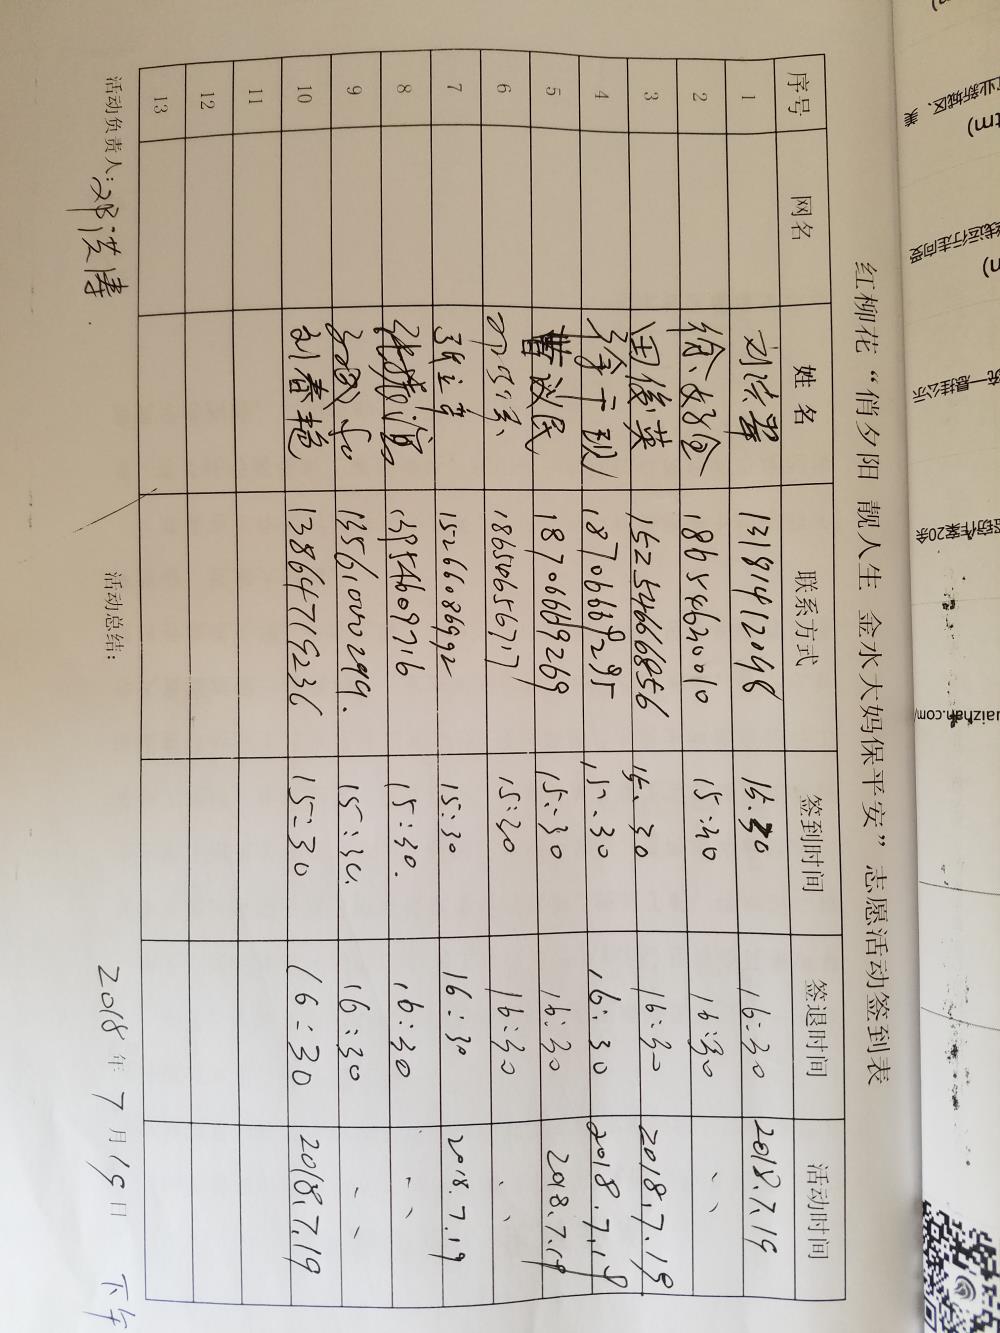 红柳花“俏夕阳 靓人生 金水大妈保平安”志愿活动签到表
序号 网名 姓名 联系方式 签到时间 签退时间 活动时间
1 刘洪翠 13191412048 15:30 16:30 2018.7.19
2 徐文金 18654620010 15:30 16:30 、、
3 田俊英 15254666856 15:30 16:30 2018.7.19
4 18706669295 15:30 16:30 2018.7.19
5 曹议民 18706669269 15:30 16:30 2018.7.19
6 18654656717 15:30 16:30 、、
7 张立芳 15266086992 15:30 16:30 2018.7.19
8 13954609716 15:30. 16:30 、、
9 13561000299. 15:30. 16:30 、、
10 刘春艳 13864719236 15:30 16:30 2018.7.19
11
12
13
活动负责人：邓洪涛. 活动总结： 2018年7月19日 下午
业新城区、美
线运行走向受
统一悬挂公示
动作案20余
uaizhan.com/